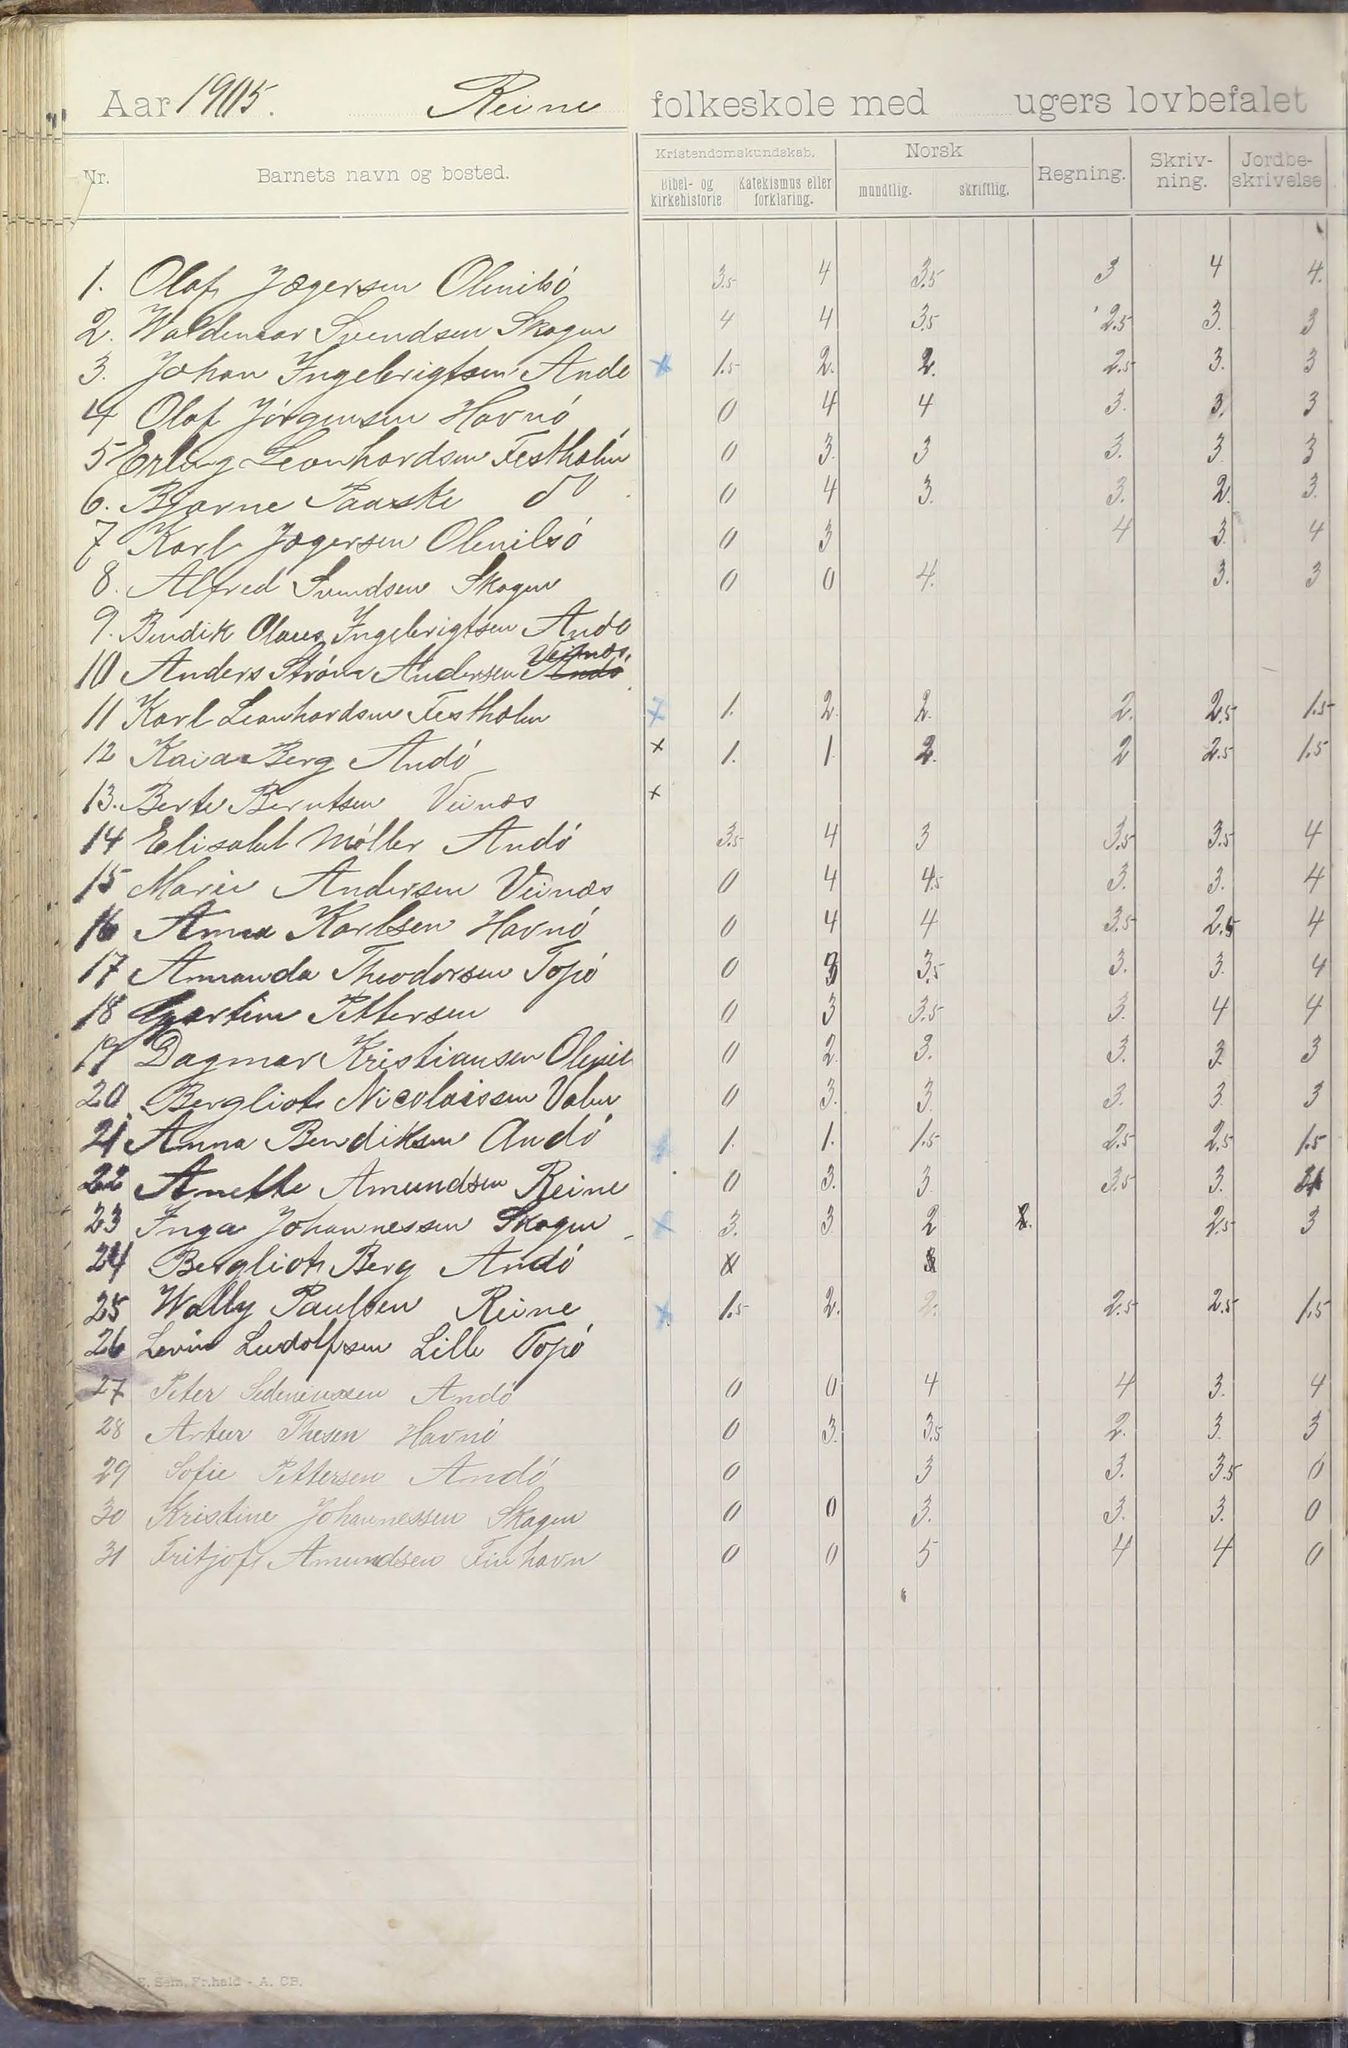 Aar 1905. Reine folkeskole med ugers lovbefalet
Nr. Barnets navn og bosted. Kristendomskundskab. Norsk Regning. Skriv-ning. Jordbe-skrivelse
Bibel- og kirkehistorie Katekismus eller forklaring. mundtlig. skriftlig.
1. Olaf Jægersen Olenilsö 3.5 4 3.5 3 4 4.
2. Waldemar Svendsen Skogen 4 4 3.5 2.5 3. 3
3. Johan Ingebrigtsen Andö x 1.5 2. 2. 2.5 3. 3
4 Olaf Jörgensen Havnö 0 4 4 3. 3. 3
5 Erling Leonhardsen Festholm 0 3. 3 3. 3 3
6. Bjarne Paaske do 0 4 3. 3. 2. 3.
7 Karl Jægersen Olenilsö 0 3 4 3. 4
8. Alfred Svendsen Skogen 0 0 4. 3. 3
9. Bendik Olaus Ingebrigtsen Andö
10 Anders Ström Andersen Andö Veinæs.
11 Karl Leonhardsen Festholm x 1. 2. 2. 2. 2.5 1.5
12 Kaia Berg Andö x 1. 1 2. 2 2.5 1.5
13. Berte Berntsen Veinæs x
14 Elisabet Möller Andö 3.5 4 3 3.5 3.5 4
15 Marie Andersen Veinæs 0 4 4.5 3. 3. 4
16 Anna Karlsen Havnö 0 4 4 3.5 2.5 4
17 Amanda Theodorsen Topö 0 3 3.5 3. 3. 4
18 Pettersen 0 3 3.5 3. 4 4
19 Dagmar Kristiansen Olenil 0 2. 3. 3. 3. 3
20. Bergliot Nicolaissen Valen 0 3. 3 3. 3 3
21 Anna Bendiksen Andö x 1. 1. 1.5 2.5 2.5 1.5
22 Anette Amundsen Reine 0 3. 3 3.5 3.
23 Inga Johannessen Skogen x 3. 3 2 2. 2.5 3
24 Bergliot Berg Andö
25 Wally Paulsen Reine x 1.5 2. 2. 2.5 2.5 1.5
26 Levin Ludolfsen Lille Topö
27 Peter Sedeniussen Andö 0 0 4 4 3. 4
28 Artur Thesen Havnö 0 3. 3.5 2. 3. 3
29 Sofie Pettersen Andö 0 3 3. 3.5 0
30 Kristine Johannessen Skogen 0 0 3. 3. 3. 0
31 Fritjof Amundsen Finhavn 0 0 5 4 4 0
E. Sem, Fr.hald - A. CB.